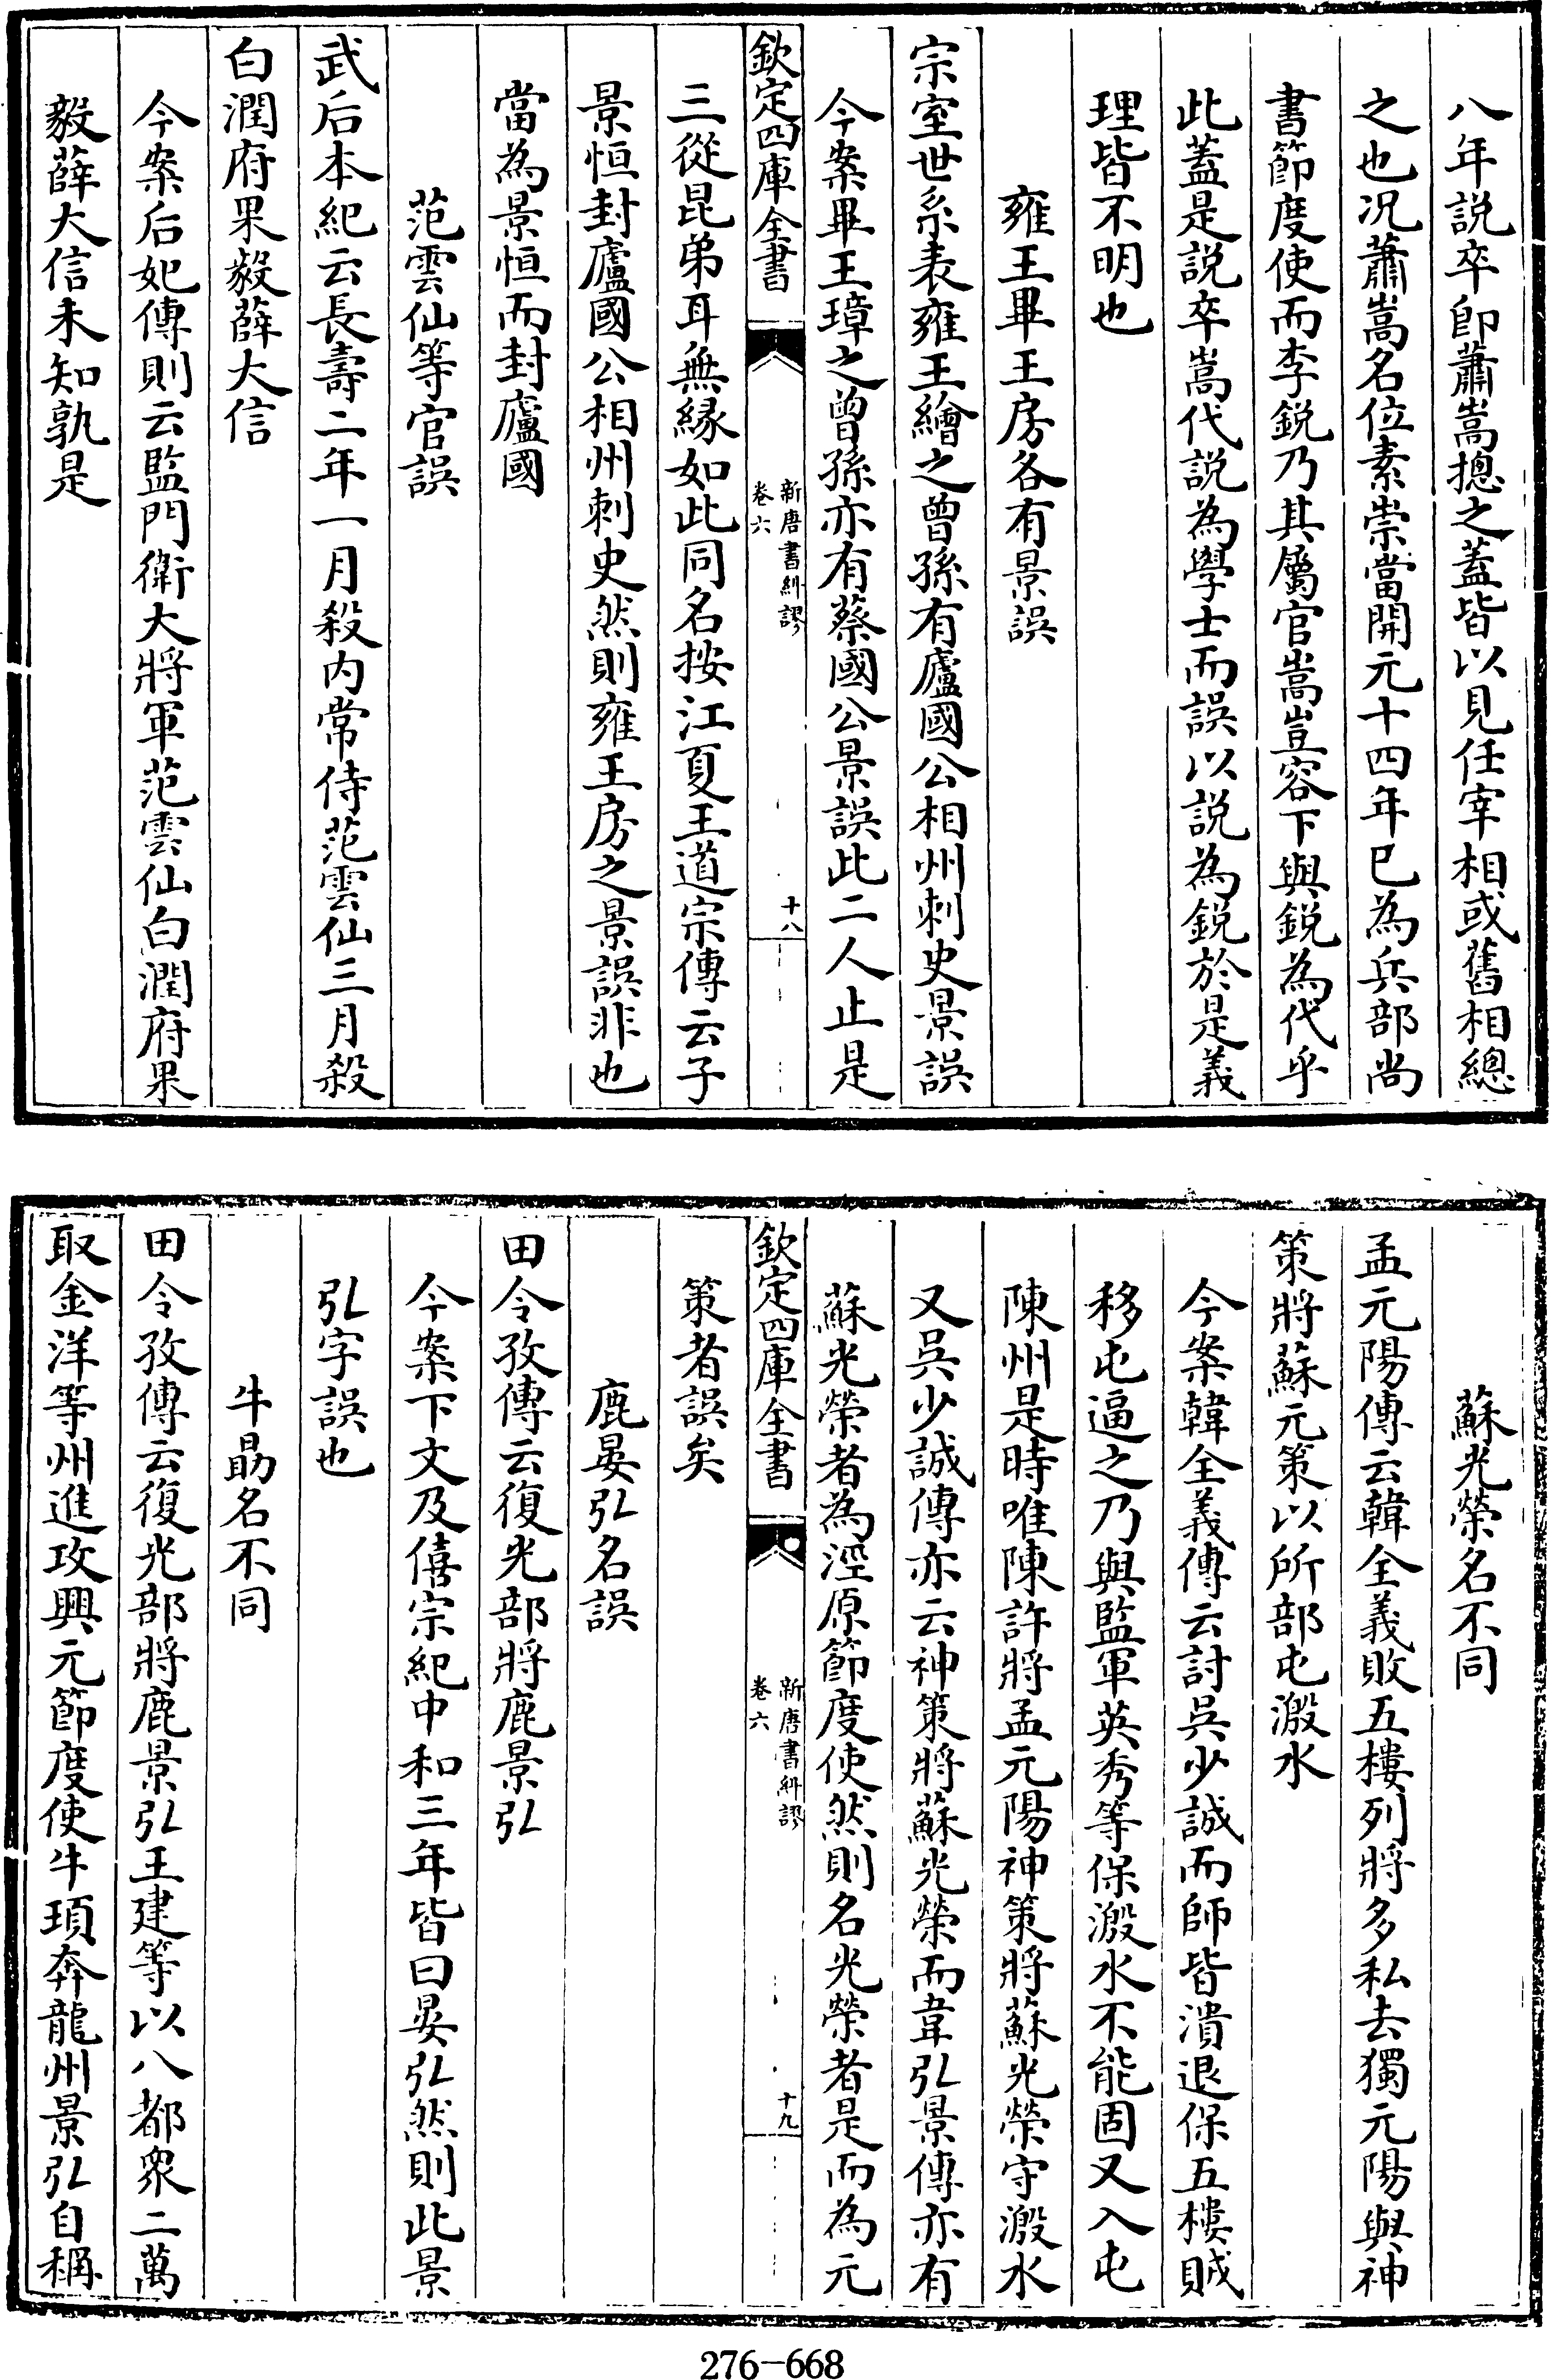 八年説卒即蕭嵩摠之蓋皆以見任宰相或舊相總
之也况蕭嵩名位素崇當開元十四年已為兵部尚
書節度使而李鋭乃其屬官嵩豈容下與鋭為代乎
此蓋是説卒嵩代説為學士而誤以説為鋭於是義
理皆不明也
雍王畢王房各有景誤
宗室世系表雍王繪之曾孫有廬國公相州刺史景誤
今案畢王璋之曾孫亦有蔡國公景誤此二人止是
欽定四庫全書
新唐書糾謬
卷六
十八
三從昆弟耳無縁如此同名按江夏王道宗傳云子
景恒封廬國公相州刺史然則雍王房之景誤非也
當為景恒而封廬國
范雲仙等官誤
武后本紀云長壽二年一月殺内常侍范雲仙三月殺
白潤府果毅薛大信
今案后妃傳則云監門衛大將軍范雲仙白潤府果
毅薛大信未知孰是
蘇光榮名不同
孟元陽傳云韓全義敗五樓列將多私去獨元陽與神
策將蘇元策以所部屯溵水
今案韓全義傳云討吳少誠而師皆潰退保五樓賊
移屯逼之乃與監軍英秀等保溵水不能固又入屯
陳州是時唯陳許將孟元陽神策將蘇光榮守溵水
又吳少誠傳亦云神策將蘇光榮而韋弘景傳亦有
蘇光榮者為涇原節度使然則名光榮者是而為元
欽定四庫全書
新唐書糾謬
卷六
十九
策者誤矣
鹿晏弘名誤
田令孜傳云復光部將鹿景弘
今案下文及僖宗紀中和三年皆曰晏弘然則此景
弘字誤也
牛勗名不同
田令孜傳云復光部將鹿景弘王建等以八都衆二萬
取金洋等州進攻興元節度使牛頊奔龍州景弘自稱
276-668